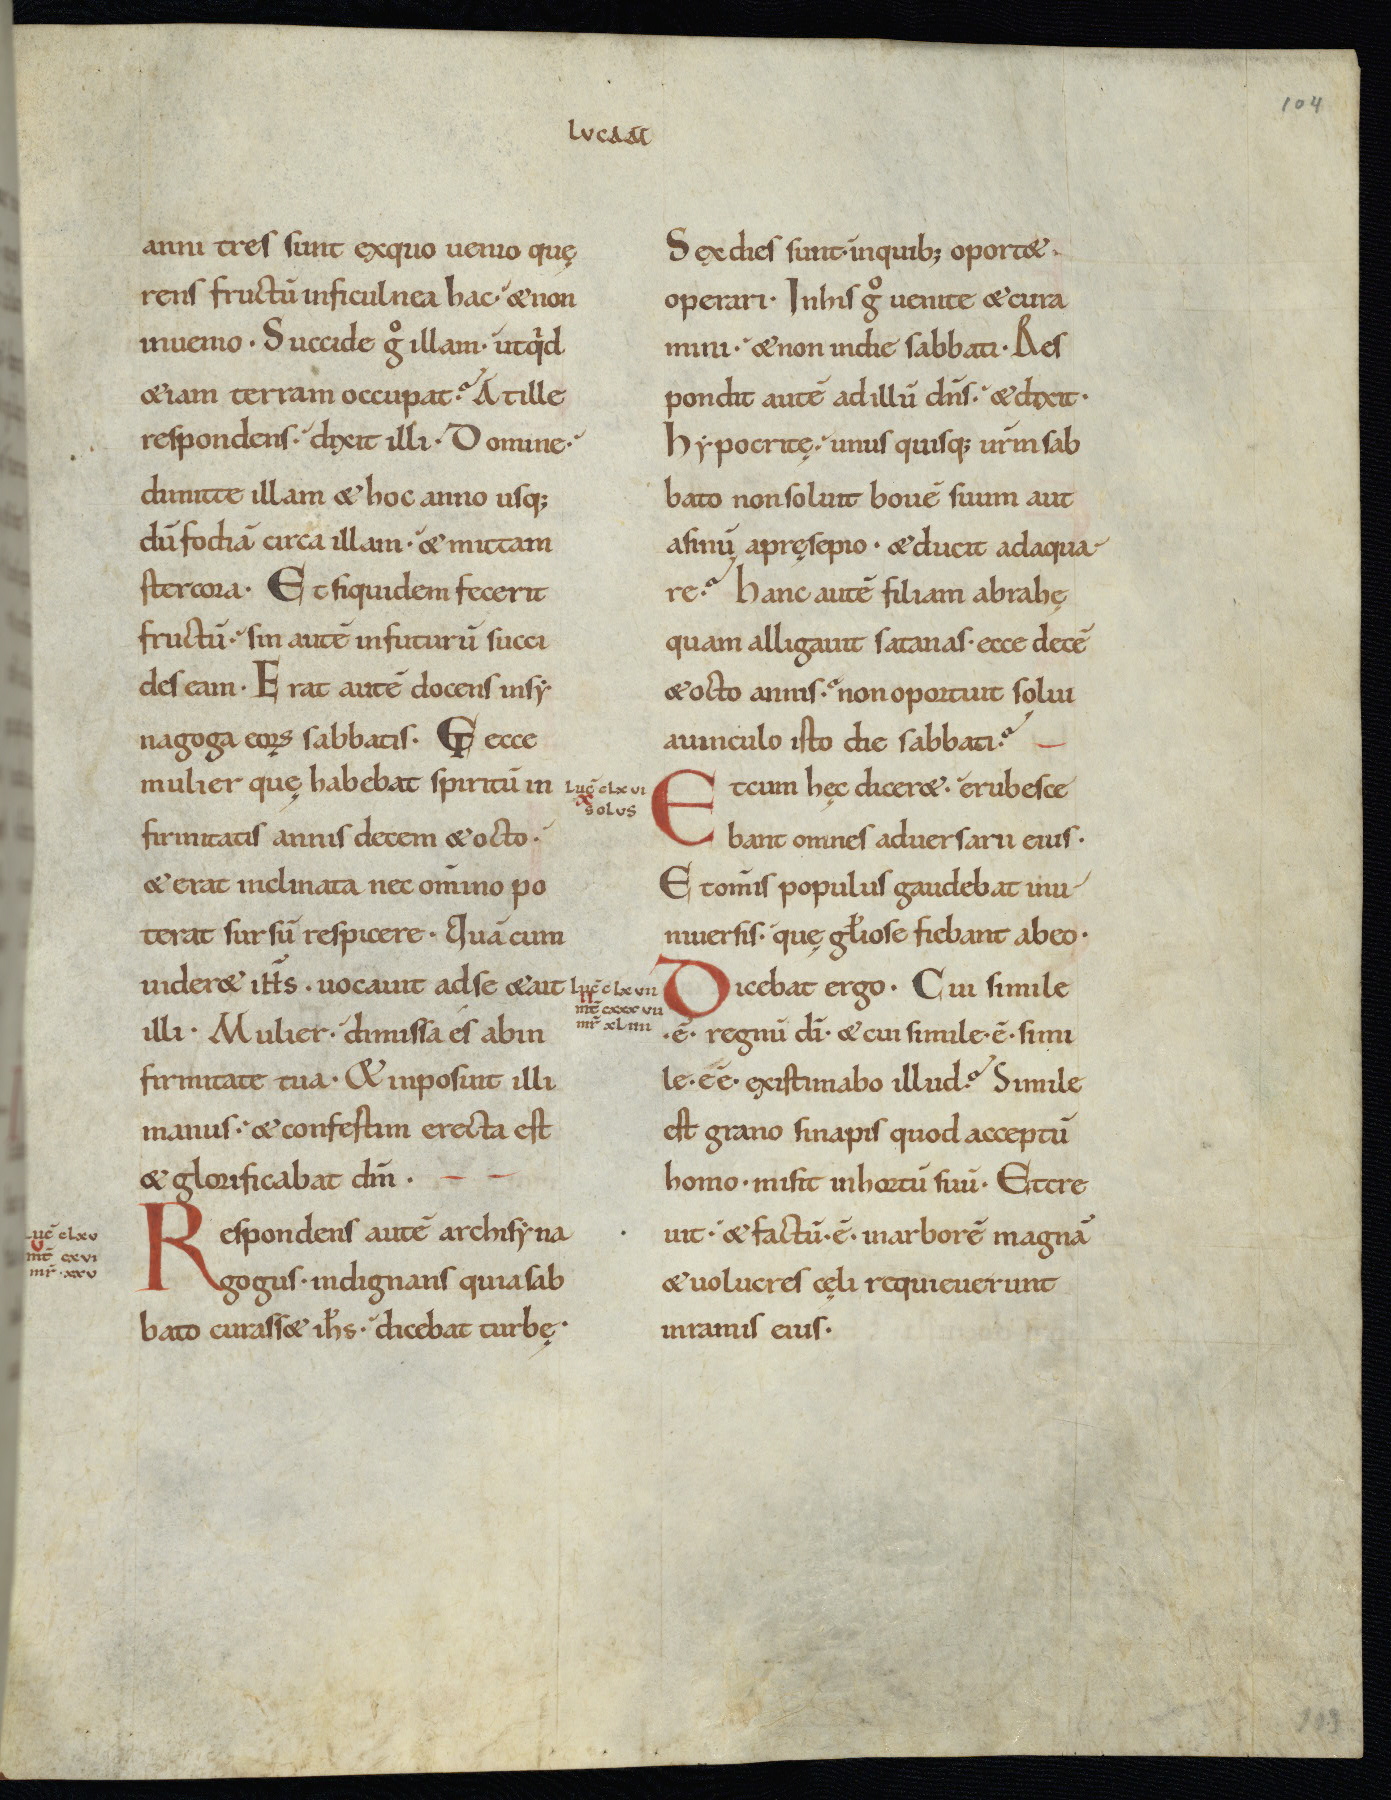 LVCAM
104
anni tres sunt exquo uenio quę
rens fructū inficulnea hac· &non
inuenio· Succide gͦ illam· utqͥd
&iam terram occupat? At ille
respondens· dixit illi· Domine·
dimitte illam & hoc anno usq;
dū fodiā circa illam· & mittam
stercora· Et siquidem fecerit
fructū· sin autē infuturū succi
des eam· Erat autē docens insẏ
nagoga eoꝝ sabbatis· Et ecce
mulier quę habebat spiritū in
firmitatis annis decem &octo·
& erat inclinata nec om̄ino po
terat sursū respicere· Quā cum
uider& ih̄s· uocauit adse &ait
illi· Mulier· dimissa es abin
firmitate tua· & inposuit illi
manus· & confestim erecta est
& glorificabat dm̄·
Respondens autē archisẏna
gogus· indignans quiasab
bato curass& ih̄s· dicebat turbę·
Luc̄ clxv
v
mt̄ cxvi
mr̄ xxv
Sex dies sunt· inquib; oport&·
operari· Inhis gͦ uenite &cura
mini· &non indie sabbati· Res
pondit autē adillū dn̄s· &dixit·
hẏpocritę· unus quisq; ur̄m sab
bato nonsoluit bouē suum aut
asinū apręsepio· &ducit adaqua
re? hanc autē filiam abrahę
quam alligauit satanas· ecce decē
&octo annis· nonoportuit solui
auinculo isto die sabbati?
Luc̄ clxvi
x
solus
Etcum hęc dicer&· erubesce
bant omnes aduersarii eius·
Et om̄is populus gaudebat inu
niuersis· quę gl̄iose fiebant abeo·
Luc̄ clxvii
ii
mt̄ cxxxvii
mr̄ xliiii
Dicebat ergo· Cui simile
·ē· regnū dī· & cui simile·ē· simi
le·ēē· existimabo illud? Simile
est grano sinapis quod acceptū
homo· misit inhortū suū· Etcre
uit· & factū·ē· inarborē magnā
&uolucres cęli requieuerunt
inramis eius·
103